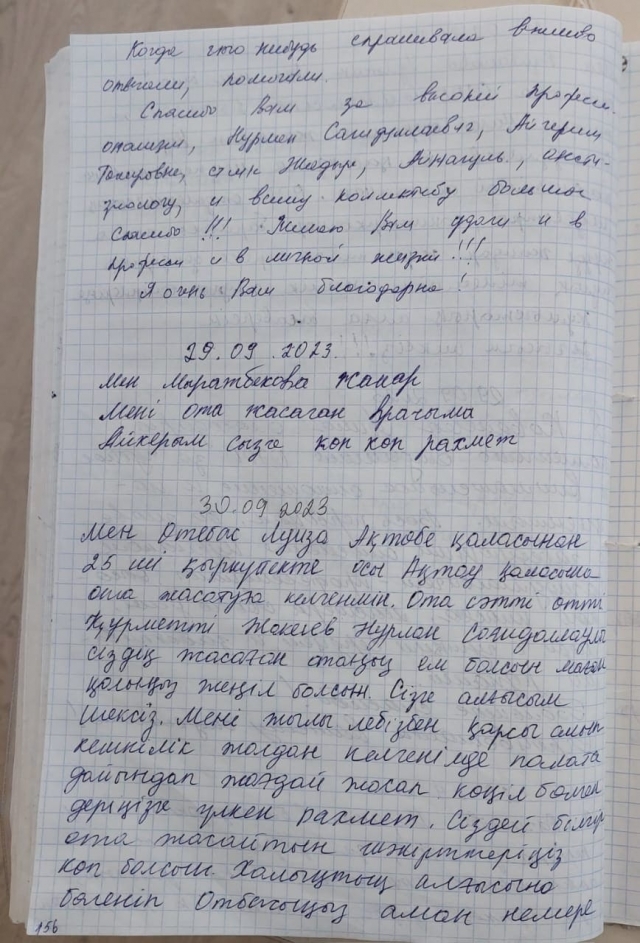 Когда что нибудь спрашивала вежливо
отвечали, помогали.
Спасибо Вам за высокий професи-
онализм, Нурлан Сагидуллаевич, Айгерим
Токировне, Жадыре, Айнагуль, анесте-
зиологу, и всему коллективу большое
спасибо!!! Желаю Вам удачи и в
професи и в личной жизни!!!
Я очень Вам благодарна!
29.09.2023.
Мен Муратбекова Жанар
Мені ота жасаган врачыма
Айкерым сызге коп коп рахмет
30.09 2023
Мен Отебас Луиза Ақтөбе қаласынан
25 ші қыркуйекте осы Ақтау қаласына
ота жасатуға келгенмін. Ота сәтті өтті
Құрметті Жакеев Нурлан Сагидоллаұлы
сіздің жасаған отаңың ем болсын маған
қолыңыз жеңіл болсын. Сізге алғысым
шексіз. Мені жылы лебізбен қарсы алып
кешкілік жолдан келгенімде палата
дайындап жағдай жасап көңіл бөлген
деріңізге үлкен рахмет. Сіздей білгір
ота жасайтын шәкірттеріңіз
көп болсын. Халықтың алғысына
бөленіп Отбасыңыз аман немере
156